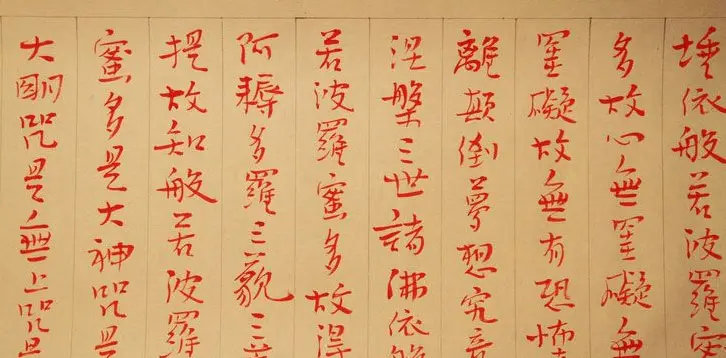 埵依般若波羅蜜
多故心無罣礙無
罣礙故無有恐怖
離顛倒夢想究竟
涅槃三世諸佛依般
若波羅蜜多故得
阿耨多羅三藐三菩
提故知般若波羅
蜜多是大神咒是
大明咒是無上咒是